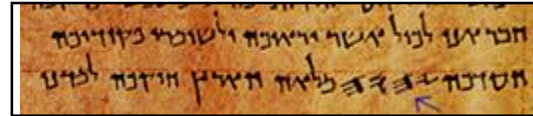 חבר אני לכול אשר יראוכה ולשומרי פקודיכה
חסדכה 𐤉𐤄𐤅𐤄 מלאה הארץ חוקיכה למדני